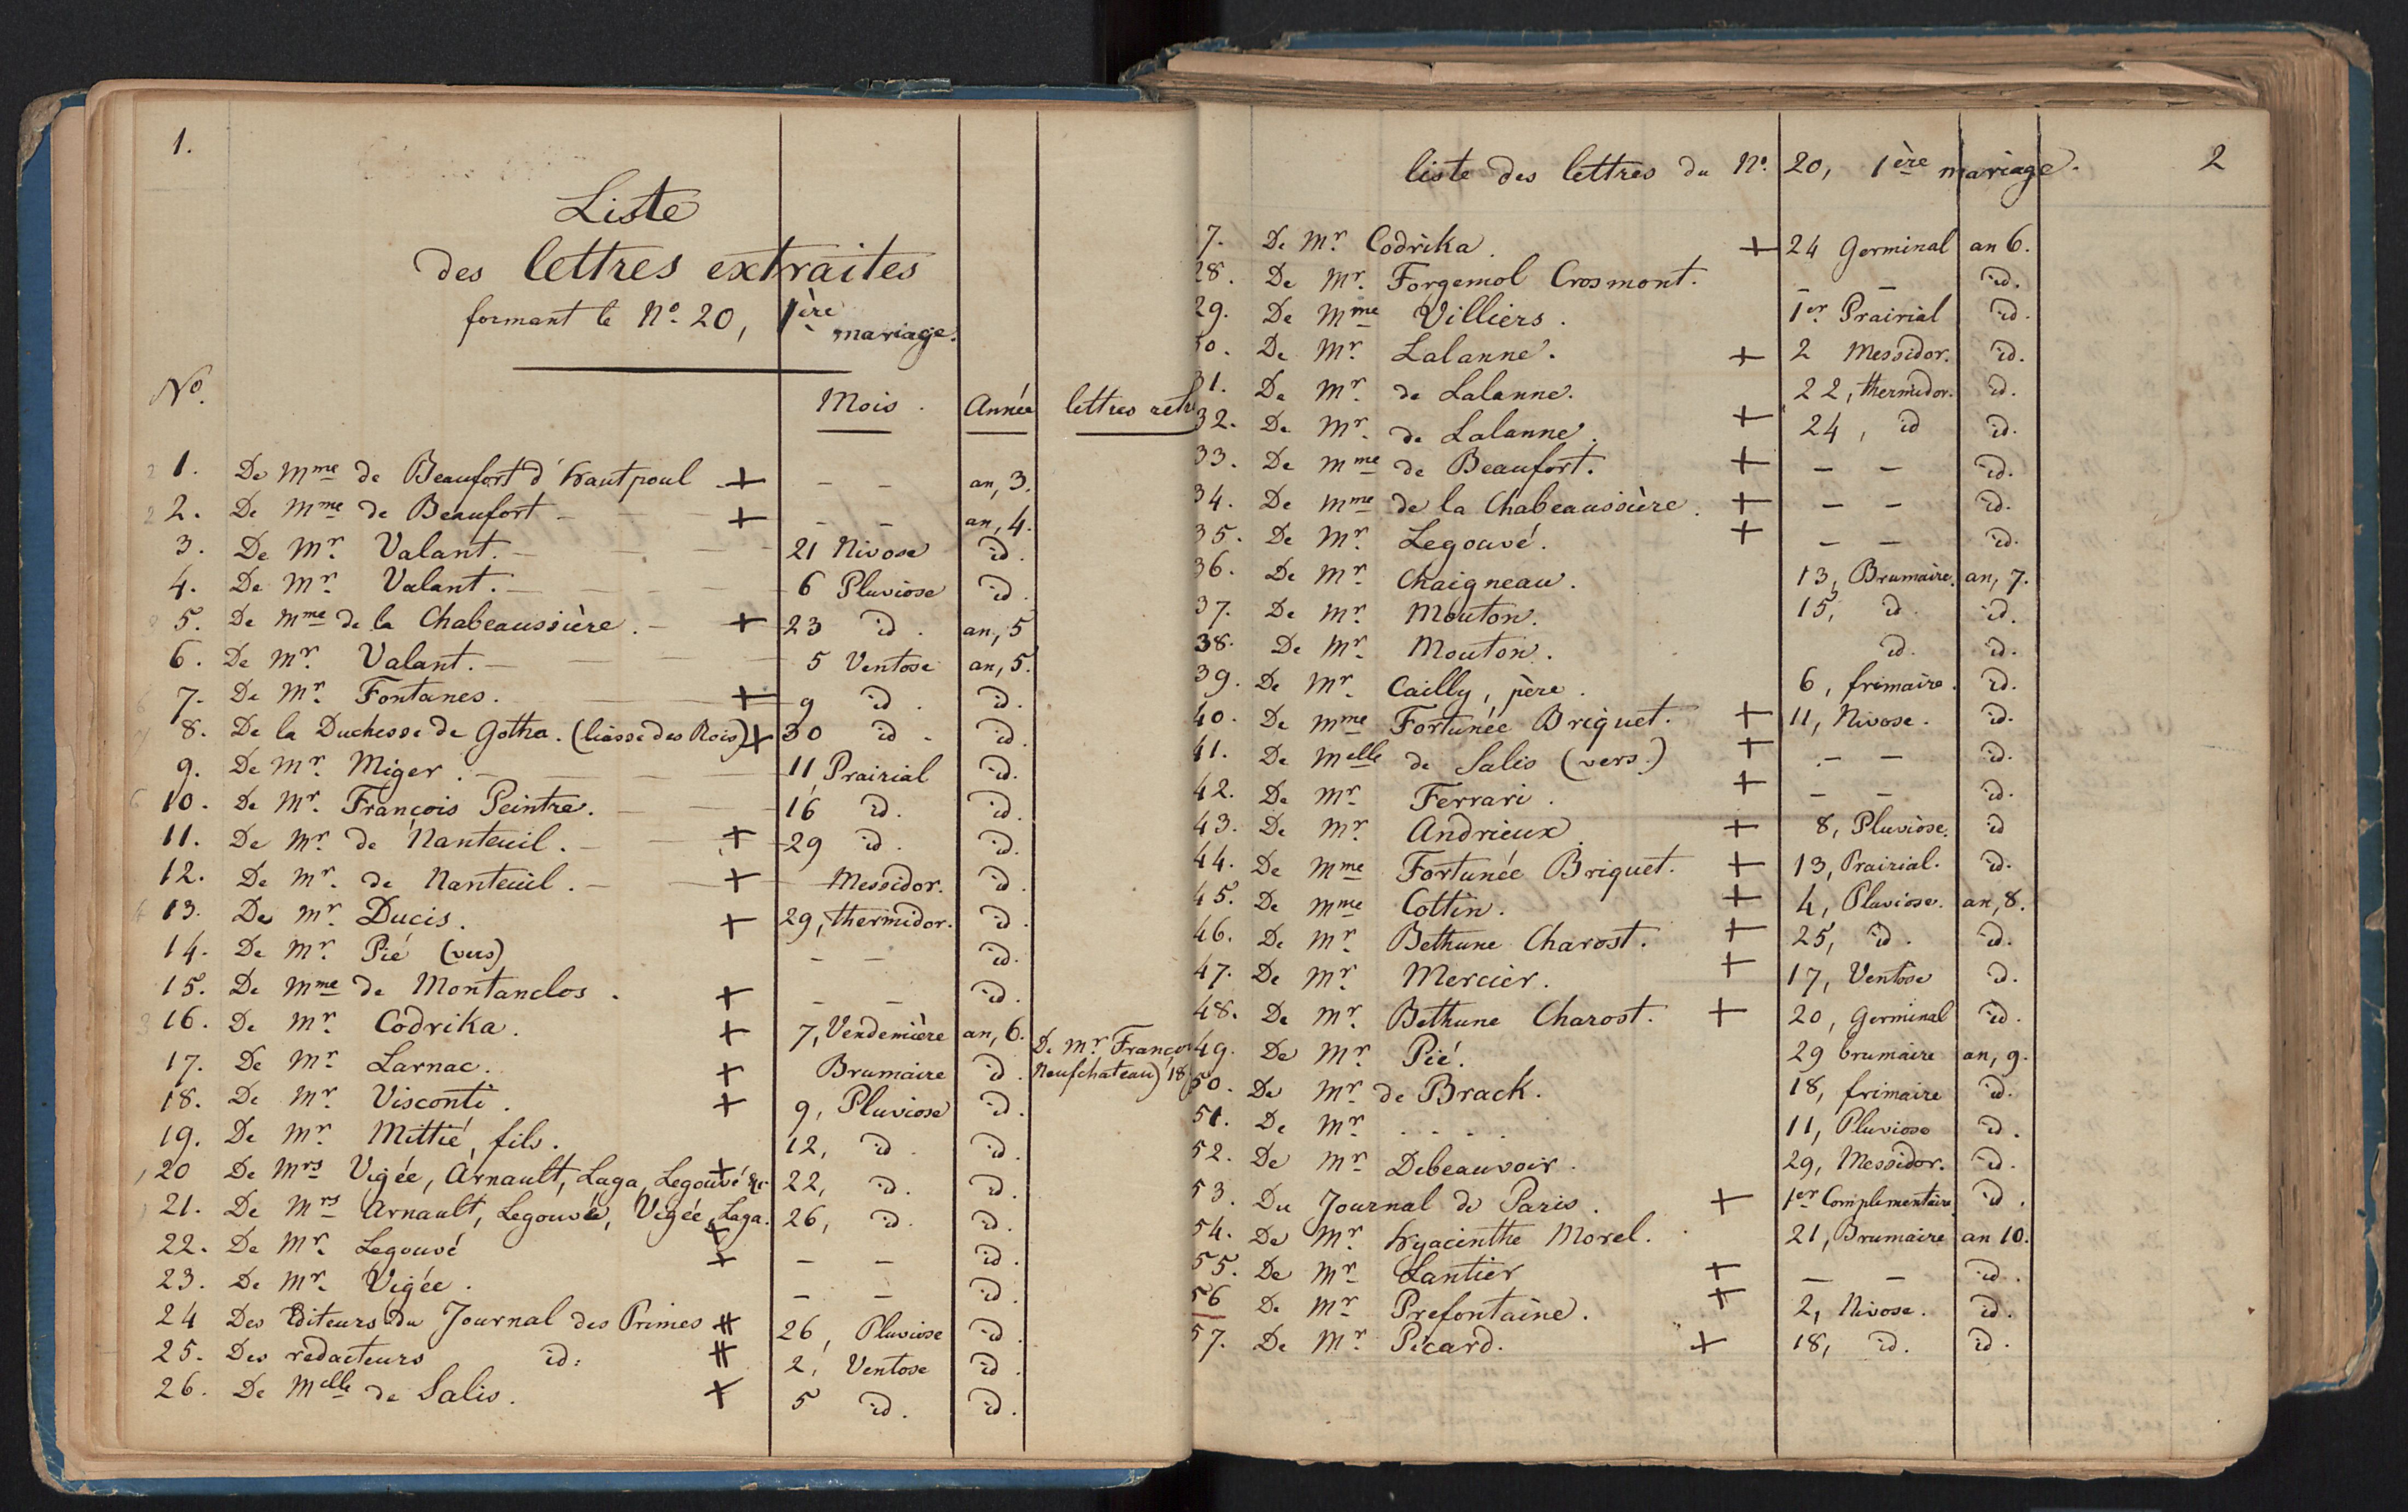 1.
Liste
des lettres extraites
formant le No. 20, 1ère mariage.
No. Mois. Année lettres retr
1. De Mme de Beaufort d'hautpoul + - - an, 3.
2. De Mme de Beaufort + - - an, 4.
3. De Mr. Valant. 21 Nivose id.
4. De Mr. Valant. 6 Pluviose id.
5. De Mme de la Chabeaussière. + 23 id. an, 5
6. De Mr. Valant. 5 Ventose an, 5.
7. De Mr. Fontanes. + 9 id. id.
8. De la Duchesse de Gotha. (liasse des Rois) + 30 id. id.
9. De Mr. Miger. 11, Prairial id.
10. De Mr. François Peintre. 16 id. id.
11. De Mr. de Nanteuil. + 29 id. id.
12. De Mr. de Nanteuil. + Messidor. id.
13. De Mr. Ducis. + 29, thermidor. id.
14. De Mr. Pié (vers) - - id.
15. De Mme de Montanclos. + - - id.
16. De Mr. Codrika. + 7, Vendemière an, 6. De Mr. Françoi
17. De Mr. Larnac. + Brumaire id. Neufchateau) 18
18. De Mr. Visconti. + 9, Pluviose id.
19. De Mr. Mittié, fils. 12, id. id.
20 De Mrs Vigée, Arnault, Laya, Legouvé &c + 22, id. id.
21. De Mrs Arnault, Legouvé, Vigée, Laya. + 26, id. id.
22. De Mr. Legouvé + - - id.
23. De Mr. Vigée. - - id.
24 Des Editeurs du Journal des Primes ++ 26, Pluviose id.
25. Des redacteurs id. ++ 2, Ventose id.
26. De Melle de Salis. + 5 id. id.
liste des lettres du No. 20, 1ère mariage. 2
7. De Mr. Codrika. + 24 Germinal an 6.
28. De Mr. Forgemol Crosmont. - - id.
29. De Mme Villiers. 1er Prairial id.
30. De Mr. Lalanne. + 2 Messidor. id.
31. De Mr. de Lalanne. 22, thermidor. id.
32. De Mr. de Lalanne. + 24, id id.
33. De Mme de Beaufort. + - - id.
34. De Mme de la Chabeaussière. + - - id.
35. De Mr. Legouvé. + - - id.
36. De Mr. Chaigneau. 13, Brumaire. an, 7.
37. De Mr. Mouton. 15, id. id.
38. De Mr. Mouton. id. id.
39. De Mr. Cailly, père. 6, frimaire. id.
40. De Mme Fortunée Briquet. + 11, Nivose. id.
41. De Melle de Salis (vers.) + - - id.
42. De Mr. Ferrari. + - - id.
43. De Mr. Andrieux + 8, Pluviôse. id
44. De Mme Fortunée Briquet. + 13, Prairial. id.
45. De Mme Cottin. + 4, Pluviose. an, 8.
46. De Mr. Bethune Charost. + 25, id. id.
47. De Mr. Mercier. + 17, Ventôse id.
48. De Mr. Bethune Charost. + 20, Germinal id.
49. De Mr. Pié. 29 brumaire an, 9.
50. De Mr. de Brack. 18, frimaire id.
51. De Mr. . . . . 11, Pluviose id.
52. De Mr. Debeauvoir. 29, Messidor. id.
53. Du Journal de Paris. + 1er Complementaire id.
54. De Mr. hyacinthe Morel. 21, Brumaire an 10.
55. De Mr. Lantier + - - id.
56 De Mr. Prefontaine. + 2, Nivose. id.
57. De Mr. Picard. + 18, id. id.